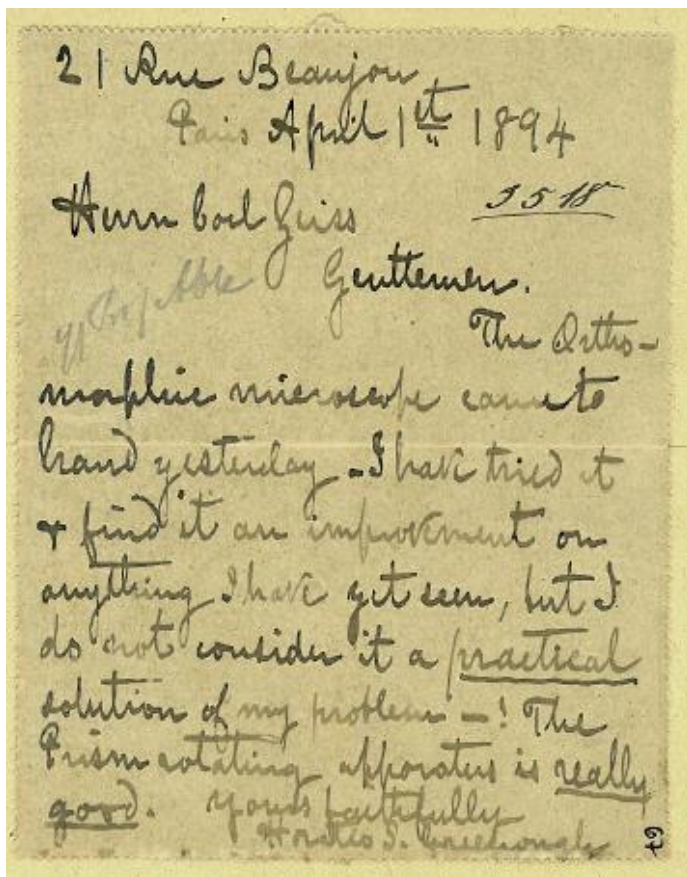 21 Rue Beaujon
Paris April 1st 1894
Herrn Carl Zeiss
3518
Gentlemen.
The Ortho-
morphic microscope came to
hand yesterday - I have tried it
& find it an improvement on
anything I have yet seen, but I
do not consider it a practical
solution of my problem - ! The
Prism rotating apparatus is really
good. Yours faithfully
Horatio S. Greenough